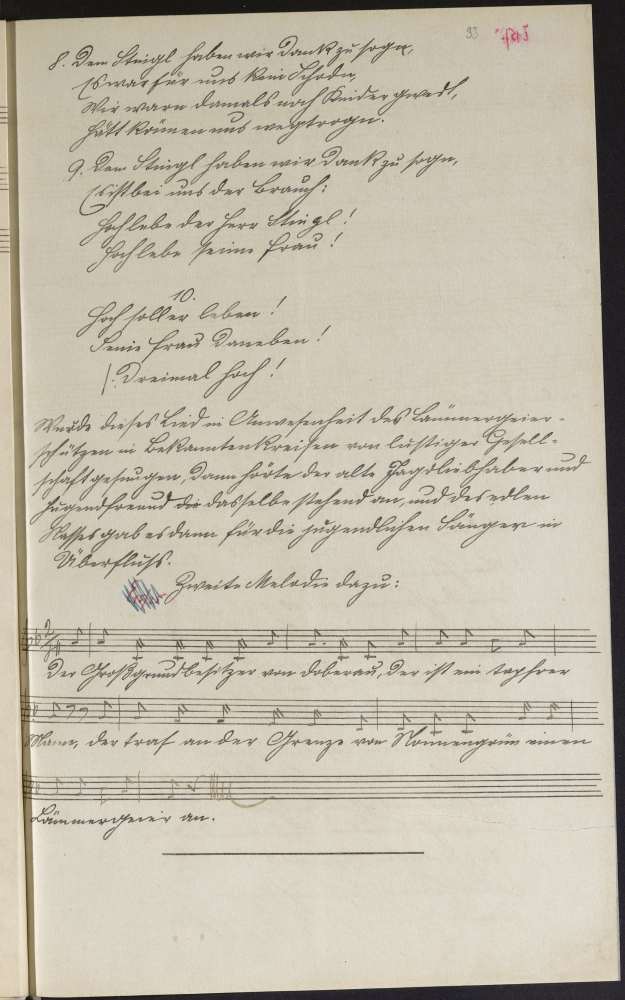 93
8. Dem Stingl haben wir Dank zu sogn,
Es war für uns kein Schodn,
Wir warn damals noch Kinder gwest,
Hätt können uns wegtrogn.
9. Dem Stingl haben wir Dank zu sogn,
Es ist bei uns der Brauch:
Hoch lebe der Herr Stingl!
Hoch lebe seine Frau!
10.
Hoch soll er leben!
Seine Frau daneben!
|: Dreimal hoch!
Wurde dieses Lied in Anwesenheit des Lämmergeier-
schützen in Bekanntenkreisen von lustiger Gesell-
schaft gesungen, dann hörte der alte Jagdliebhaber und
Jugendfreund die dasselbe stehend an, und des edlen
Nasses gab es dann für die jugendlichen Sänger in
Überfluss.
Zweite Melodie dazu:
Der Großgrundbesitzer von Doberau, der ist ein tapfrer
Mann, der traf an der Grenze von Nonnengrün einen
Lämmergeier an.